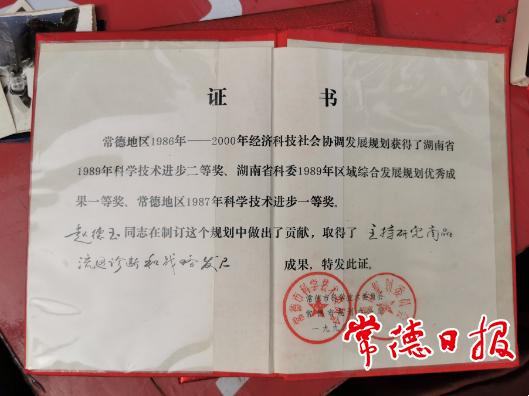 证 书
常德地区1986年——2000年经济科技社会协调发展规划获得了湖南省
1989年科学技术进步二等奖、湖南省科委1989年区域综合发展规划优秀成
果一等奖、常德地区1987年科学技术进步一等奖。
赵德玉同志在制订这个规划中做出了贡献，取得了 主持研究商品
流通诊断和战略发展 成果，特发此证。
常德市科学技术委员会
一九九
常德日报